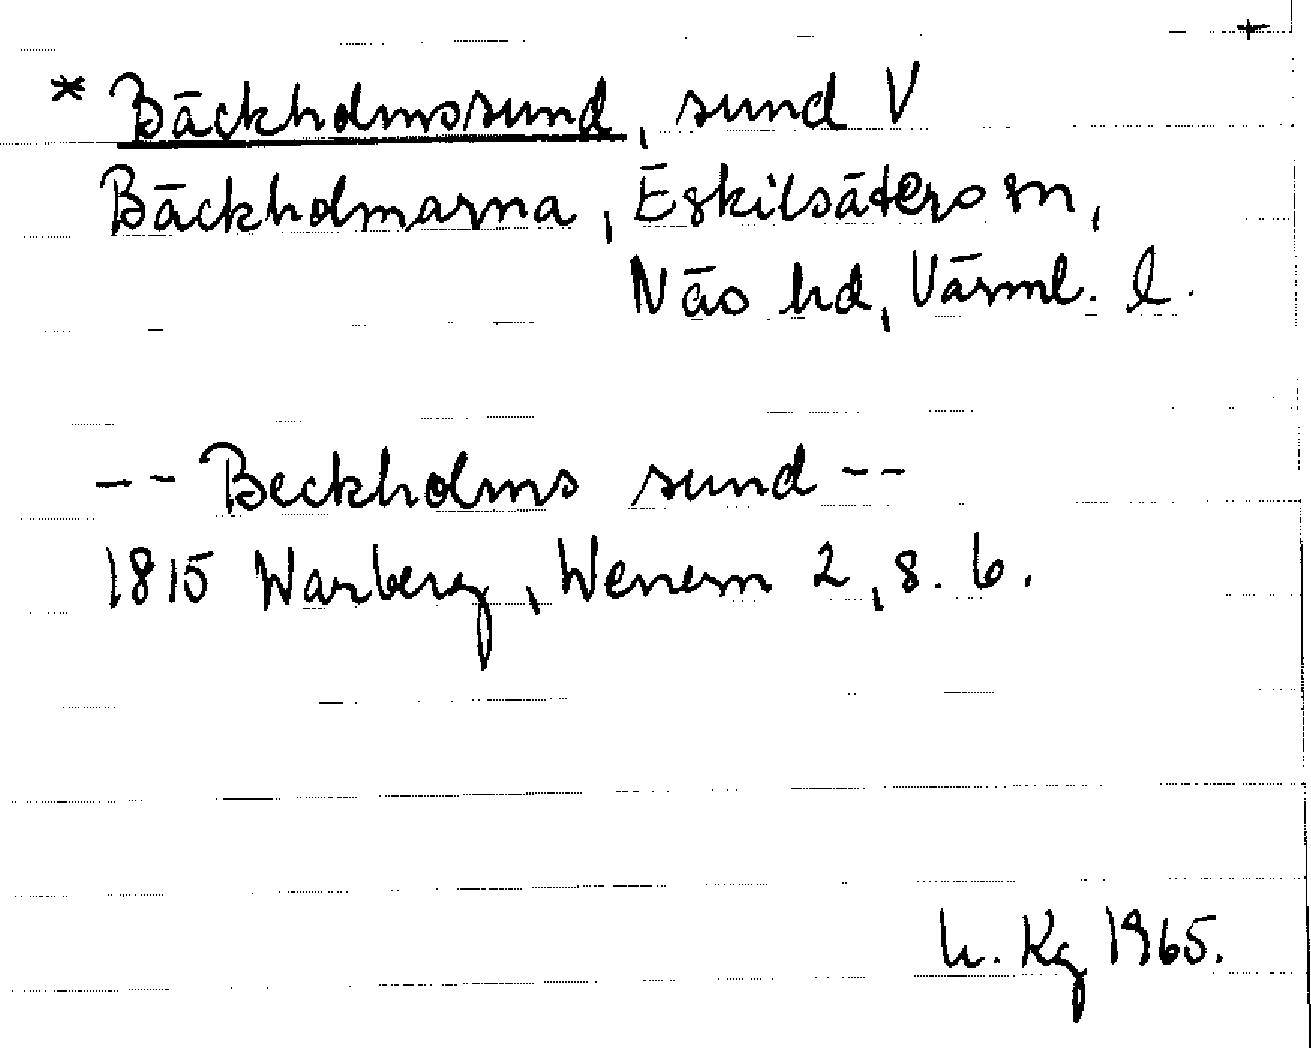 * Bäckholmssund, sund V
Bäckholmarna, Eskilsäters sn,
Näs hd, Värml. l.
-- Beckholms sund --
1815 Warberg, Wenern 2, s. 6.
h. Kg 1965.